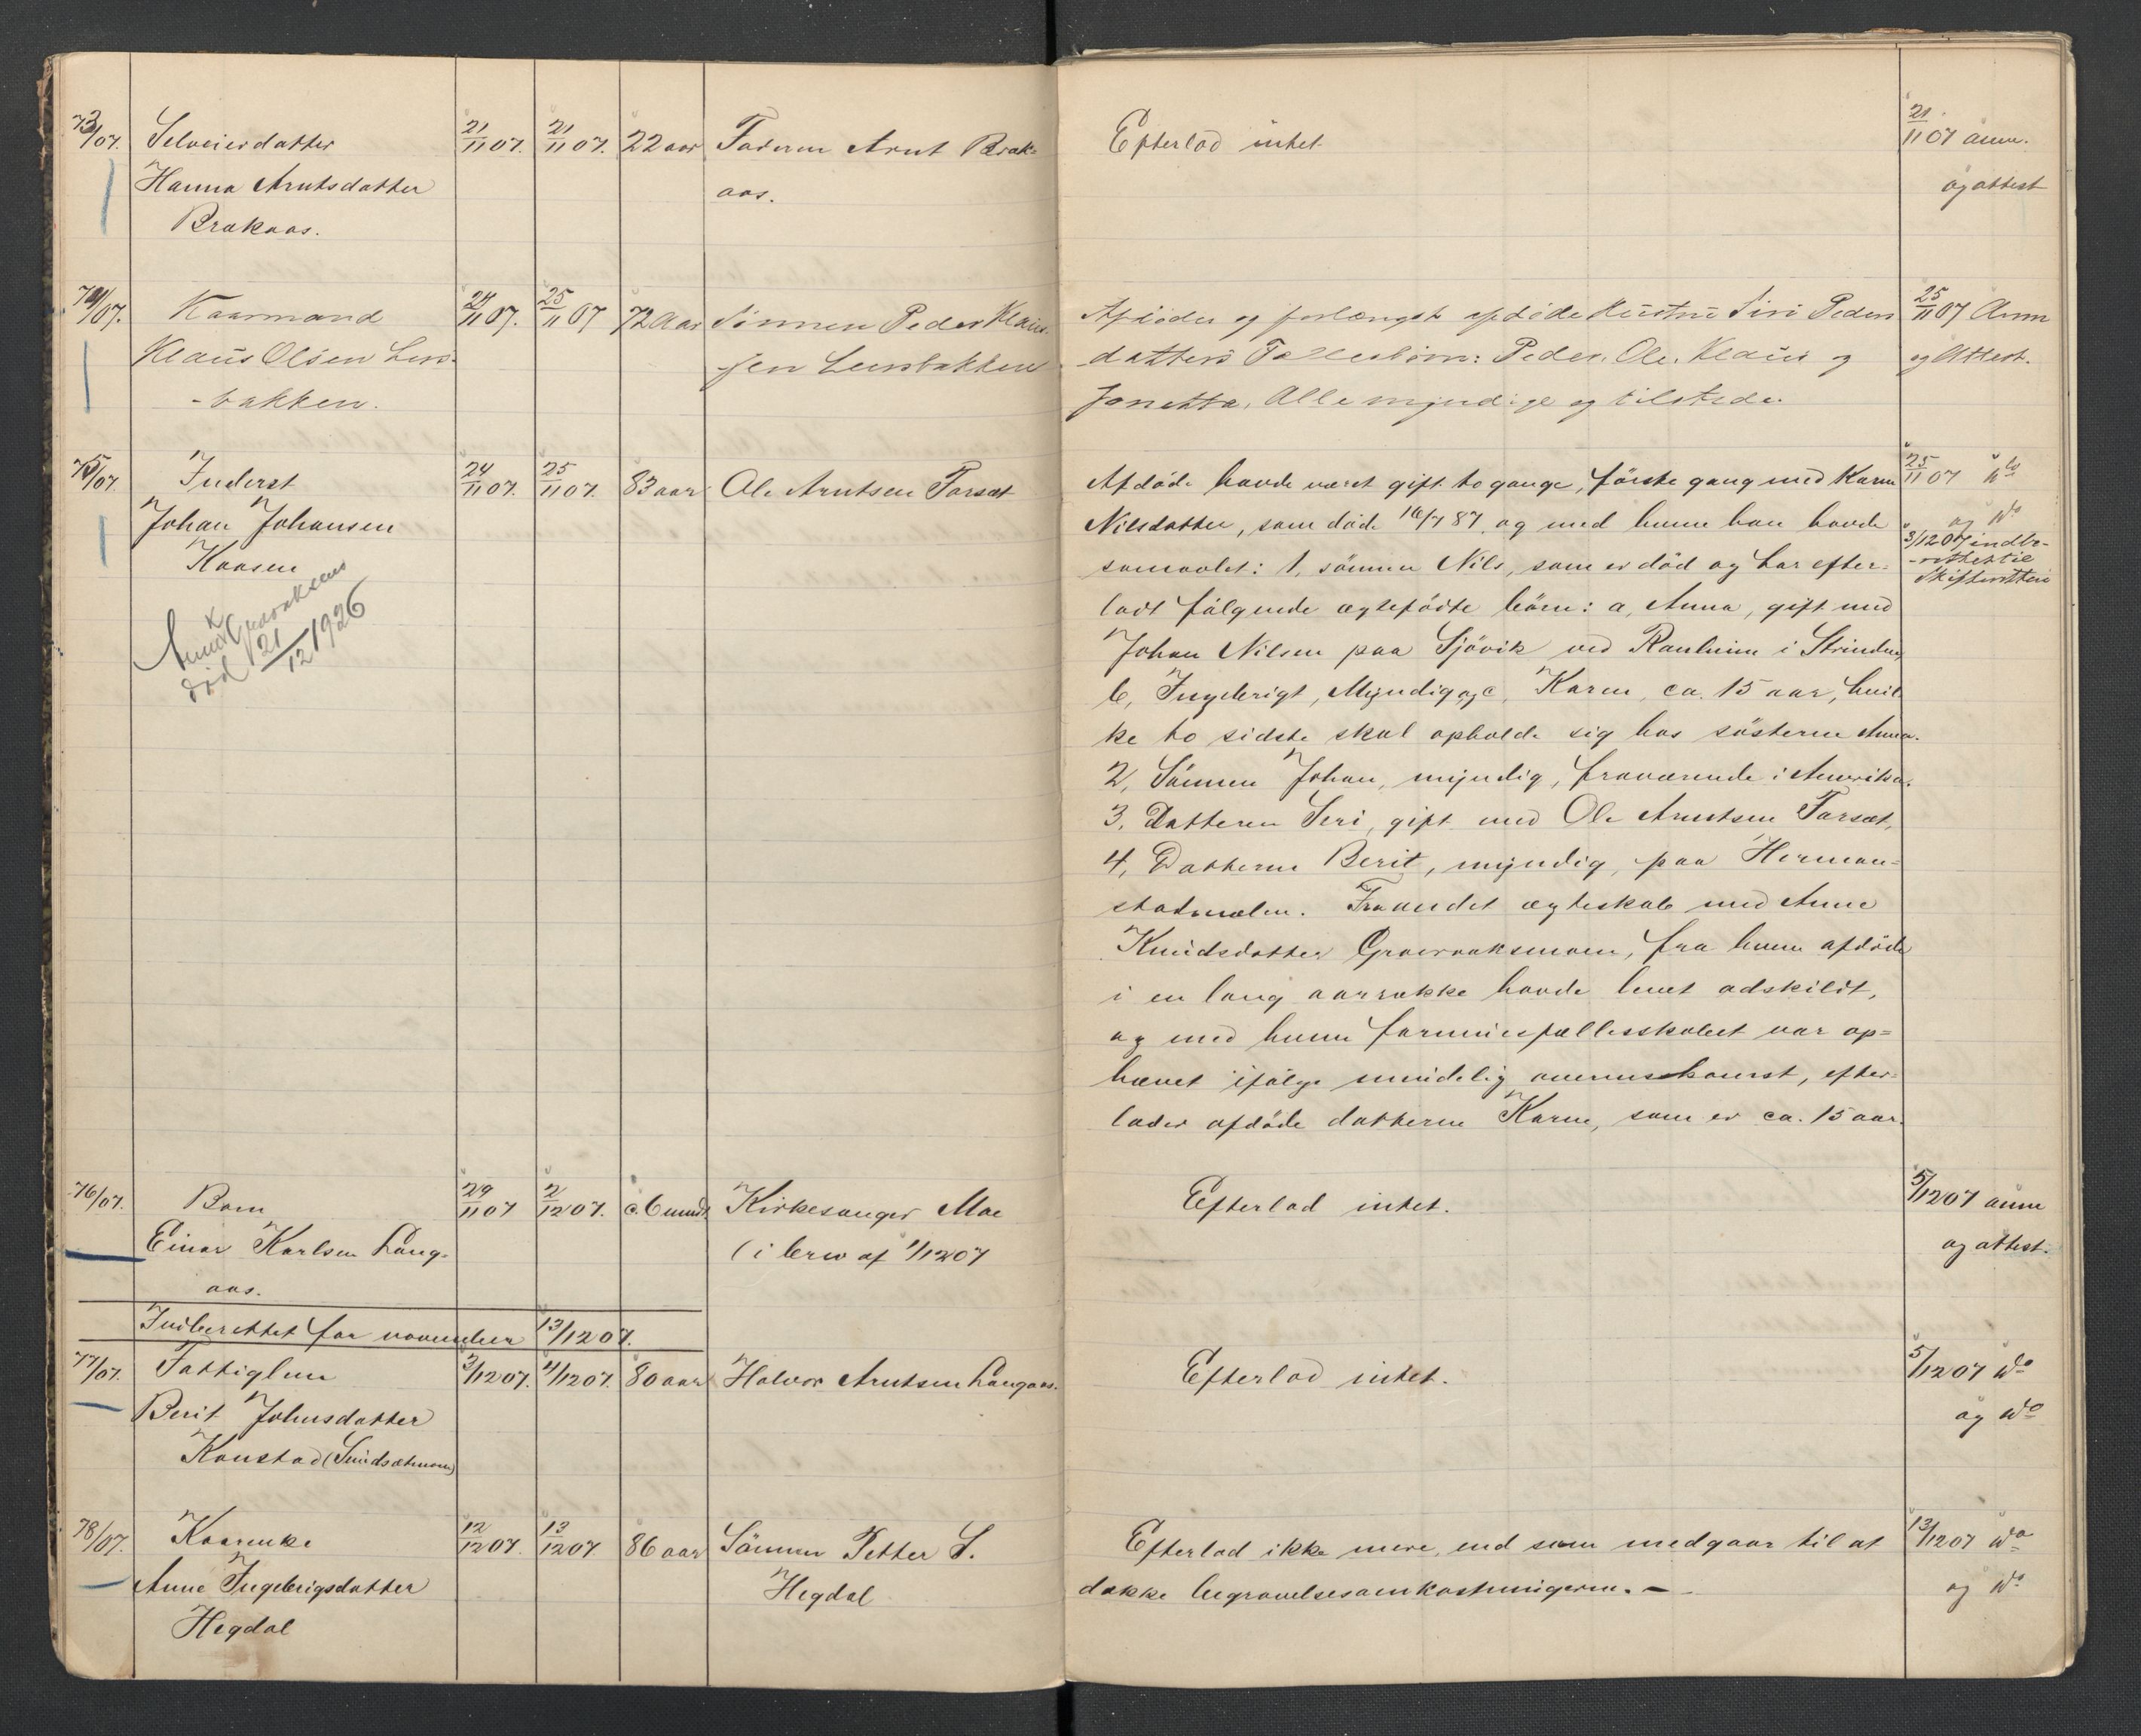 73/07. Selveierdatter 21/11 07. 21/11 07. 22 aar Faderen Arnt Brak- Efterlod intet 21/11 07 anm.
Hanna Arntsdatter aas. og attest
Brakaas.
74/07. Kaarmand 24/11 07. 25/11 07 72 Aar Sönnen Peder Klaus- Afdödes og forlængst afdöde Hustru Siri Peders 25/11 07 Anm
Klaus Olsen Lers- -sen Lersbakken datters Fællesbörn: Peder, Ole, Klaus og og Attest.
-bakken. Jonetta, Alle myndige og tilstede.
75/07. Inderst 24/11 07. 25/11 07. 83 aar Ole Arntsen Forset Afdöde havde været gift to gange, förste gang med Karen 25/11 07 do
Johan Johansen Nilsdatter, som döde 16/7 87, og med hvem han havde og do
Kaasen samavlet: 1, sönnen Nils, som er död og har efter- 3/12 07 indbe-
-rettet til
Skifteretten
ladt fölgende ægtefödte börn: a, Anna, gift med
död 21/12 1926
Johan Nilsen paa Sjövik ved Ranheim i Strinden,
b, Ingebrigt, Myndig, og c, Karen, ca. 15 aar, hvil
ke to sidste skal opholde sig hos sösteren Anna.
2, Sönnen Johan, myndig, fraværende i Amerika.
3, Datteren Seri, gift med Ole Arntsen Forset,
4, Datteren Berit, myndig, paa Herman-
stadmælen. Fra andet ægteskab med Anne
Knudsdatter Gravraaksmoen, fra hvem afdöde
i en lang aarrække havde levet adskildt,
og med hvem formuesfællesskabet var op-
hævet ifölge mundtlig overenskomst, efter-
lader afdöde datteren Karen, som er ca. 15 aar.
76/07. Barn 29/11 07 2/12 07. c. 6 mndr. Kirkesanger Moe Efterlod intet. 5/12 07 anm
Einar Karlsen Lang- (i brev af 1/12 07 og attest.
aas.
Indberettet for november 13/12 07.
77/07. Fattiglem 3/12 07. 4/12 07. 80 aar Halvor Arntsen Langaas. Efterlod intet. 5/12 07 do
Berit Johnsdatter og do
Kaustad (Smidsetmoen)
78/07. Kaarenke 12/12 07 13/12 07 86 aar Sönnen Petter S. Efterlod ikke mere, end som medgaar til at 13/12 07 do
Anne Ingebrigsdatter Hegdal dække begravelsesomkostningerne. — og do
Hegdal